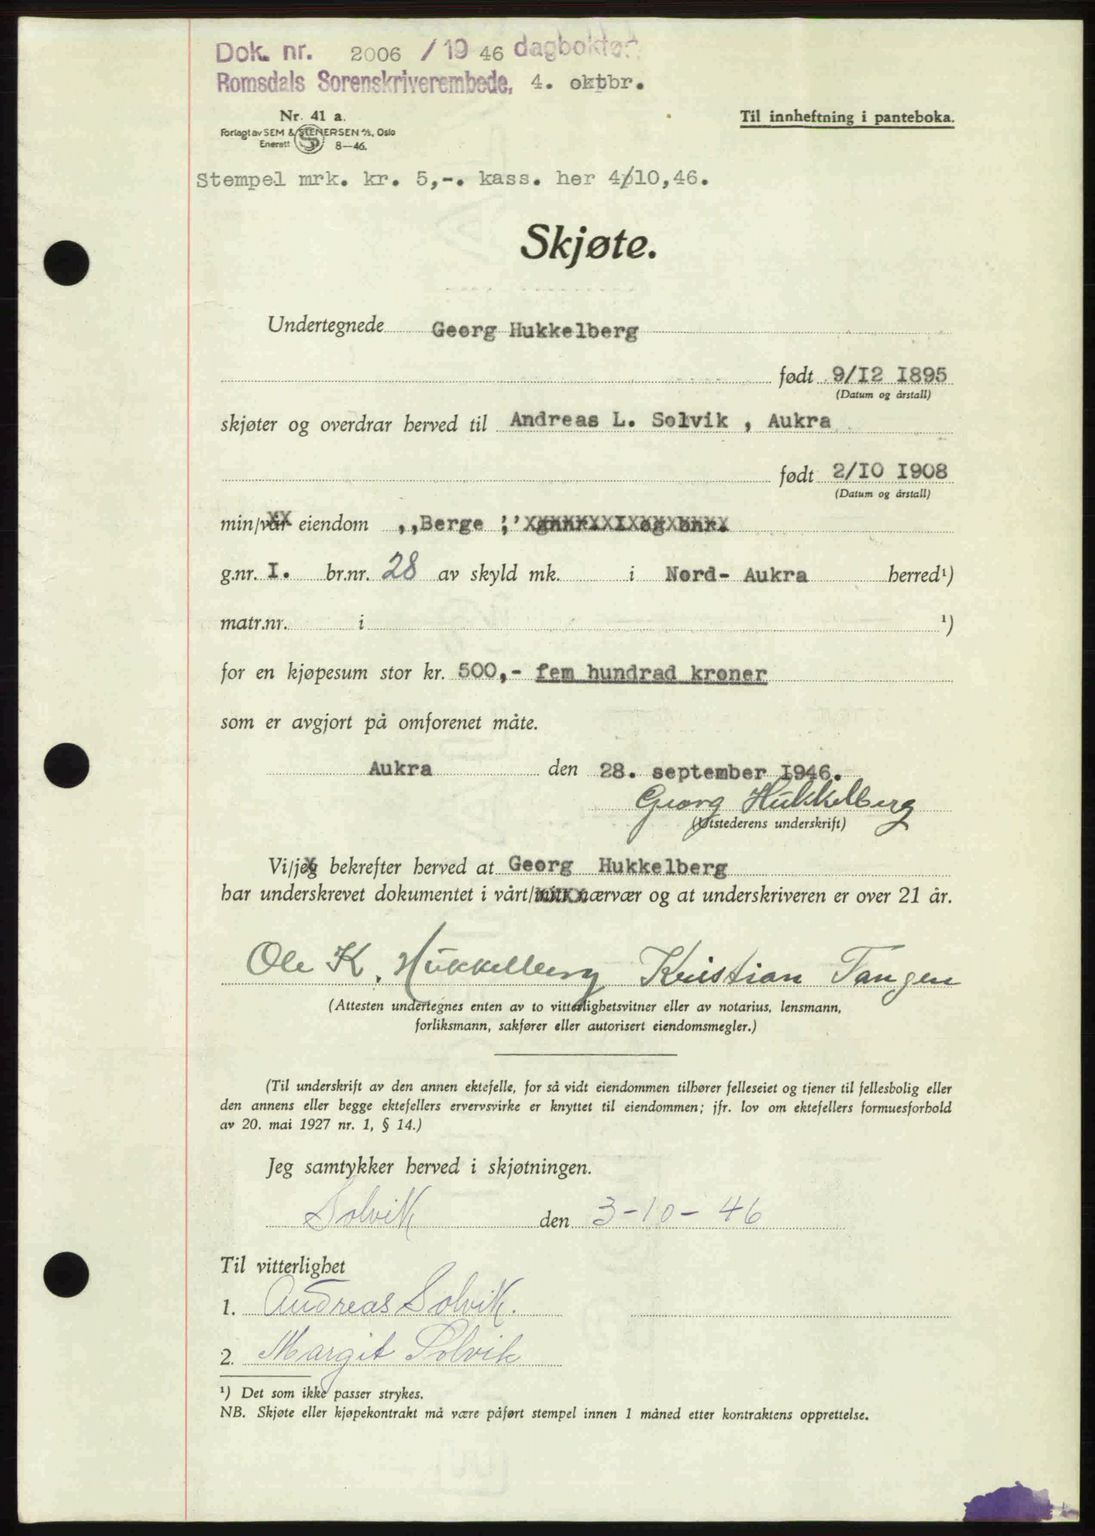 Dok. nr. 2006 / 19 46 dagbokført
Romsdals Sorenskriverembede, 4. oktbr.
Nr. 41 a.
Forlagt av SEM & STENERSEN A/S, Oslo
Enerett 8—46.
Til innheftning i panteboka.
Stempel mrk. kr. 5,-. kass. her 4/10,46.
Skjøte.
Undertegnede Georg Hukkelberg
født 9/I2 I895
(Datum og årstall)
skjøter og overdrar herved til Andreas L. Solvik , Aukra
født 2/IO I908
(Datum og årstall)
min/vår eiendom ,,Berge ,'
g.nr. I. br.nr. 28 av skyld mk. i Nord- Aukra herred¹)
matr.nr. i ¹)
for en kjøpesum stor kr. 500,- fem hundrad kroner
som er avgjort på omforenet måte.
Aukra den 28. september I946.
Georg Hukkelberg
(Utstederens underskrift)
Vi/jeg bekrefter herved at Georg Hukkelberg
har underskrevet dokumentet i vårt/mitt nærvær og at underskriveren er over 21 år.
Ole K. Hukkelberg Kristian Tangen
(Attesten undertegnes enten av to vitterlighetsvitner eller av notarius, lensmann,
forliksmann, sakfører eller autorisert eiendomsmegler.)
(Til underskrift av den annen ektefelle, for så vidt eiendommen tilhører felleseiet og tjener til fellesbolig eller
den annens eller begge ektefellers ervervsvirke er knyttet til eiendommen; jfr. lov om ektefellers formuesforhold
av 20. mai 1927 nr. 1, § 14.)
Jeg samtykker herved i skjøtningen.
Solvik den 3-10-46
Til vitterlighet
1. Andreas Solvik.
2. Margit Solvik
¹) Det som ikke passer strykes.
NB. Skjøte eller kjøpekontrakt må være påført stempel innen 1 måned etter kontraktens opprettelse.